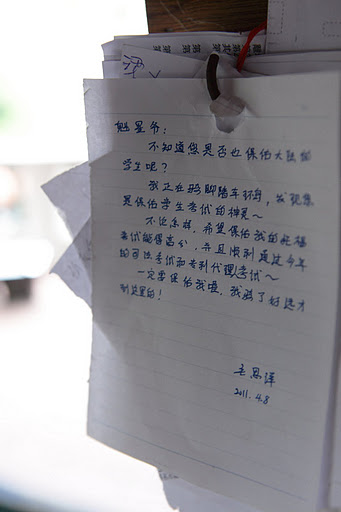 魁星爷:
不知道您是否也保佑大陆的
学生呢?
我正在骑脚踏车环岛,发现您
是保佑学生考试的神灵~
不论怎样,希望保佑我的托福
考试能得高分,并且顺利通过今年
的司法考试和专利代理考试~
一定要保佑我喔,我骑了好远才
到这里的!
2011.4.8